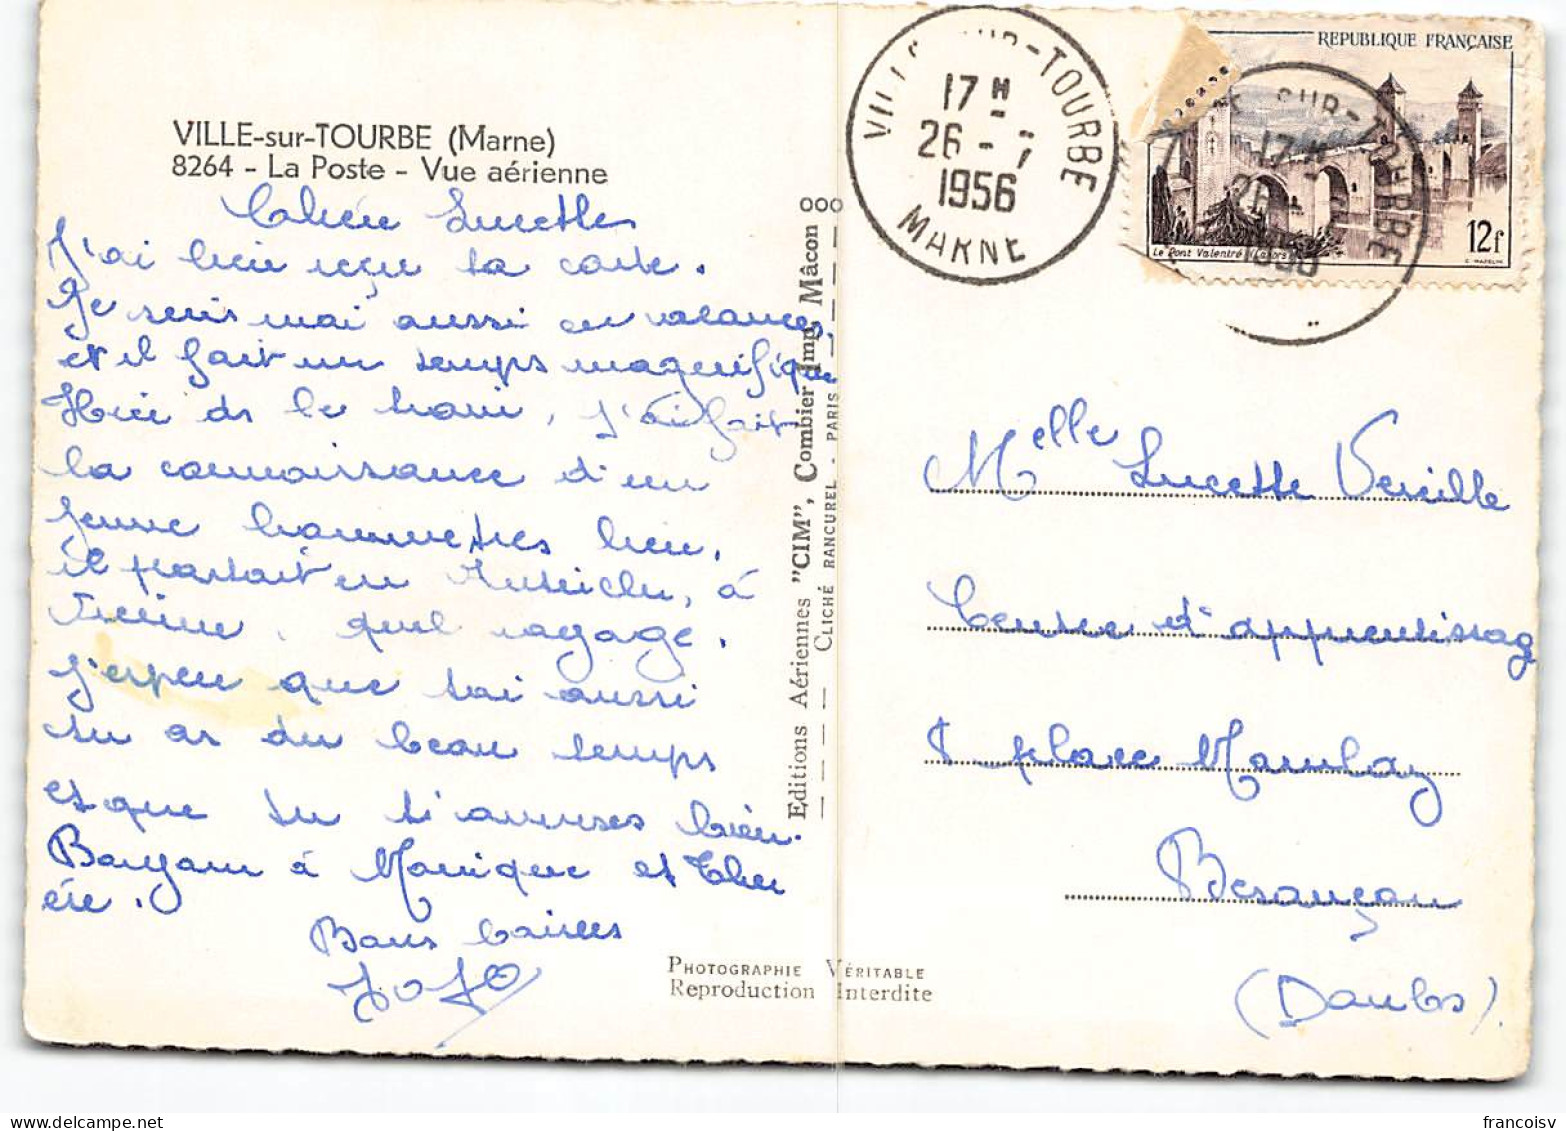 VILLE-sur-TOURBE (Marne)
8264 - La Poste - Vue aérienne
Chère Lucette
J'ai bien reçu ta carte.
Je suis moi aussi en vacances,
et il fait un temps magnifique
Hier ds le train, j'ai fait
la connaissance d'un
jeune homme très bien,
il partait en Autriche, à
Vienne, quel voyage.
J'espère que toi aussi
tu as du beau temps
et que tu t'amuses bien.
Bonjour à Monique et
Bons baisers
JoJo
Editions Aériennes "CIM", Combier Imp. Mâcon
CLICHÉ RANCUREL - PARIS
PHOTOGRAPHIE VÉRITABLE
Reproduction Interdite
VILLE-SUR-TOURBE
17 H
26 - 7
1956
MARNE
REPUBLIQUE FRANÇAISE
Le Pont Valentré (Cahors)
12f
C. MAZELIN
SUR-TOURBE
17 H
26
1956
Melle Lucette Vereille
Centre d'apprentissag
place
Besançon
(Doubs).
francoisv